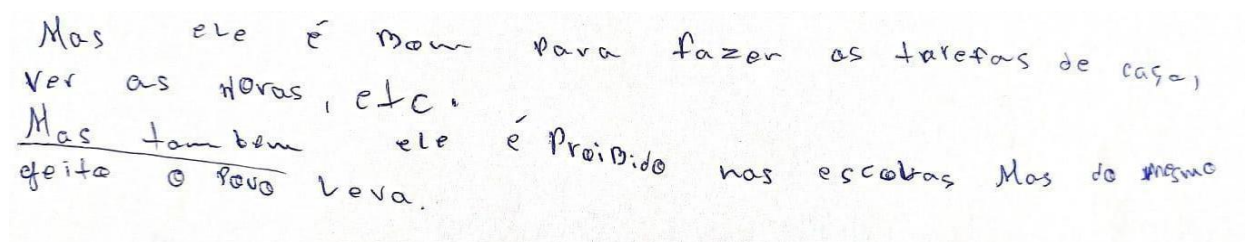 Mas ele é Bom para fazer as tarefas de casa,
Ver as Horas, etc.
Mas tambem ele é ProiBido nas escolas Mas do mesmo
efeito o Povo Leva.